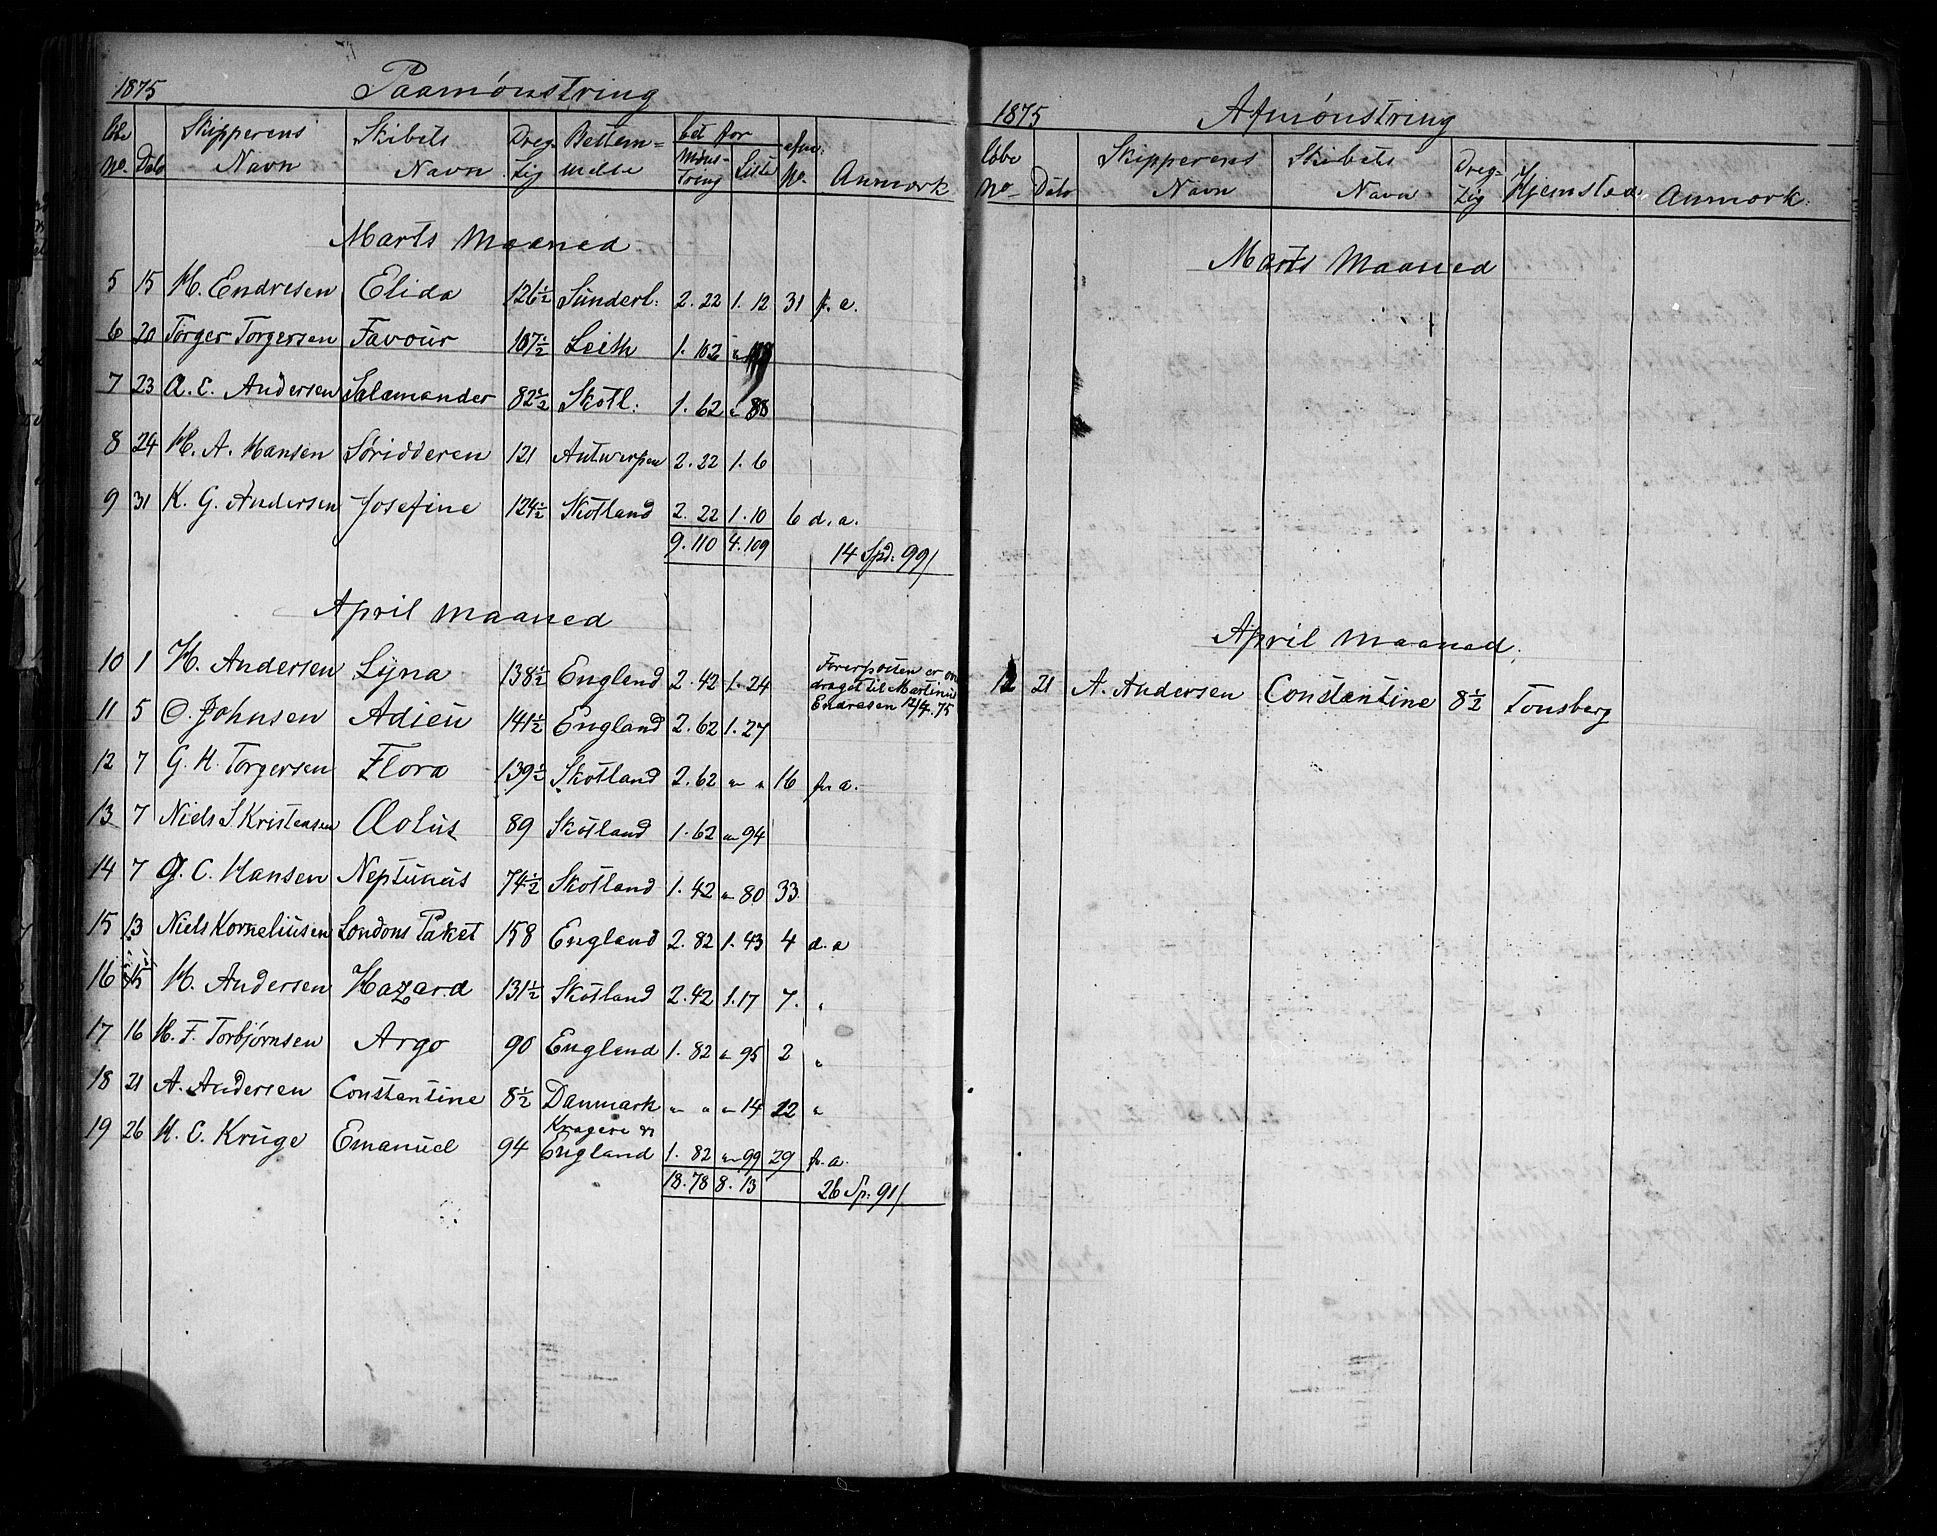 1875 Paamønstring
løbe No. Dato Skipperens Navn Skibets Navn Dreg-tig Bestem=melse bet for Møns-tring Liste afm: No. Anmærk
Marts Maaned
5 15 H. Endresen Elida 126½ Sunderl: 2. 22 1. 12 31 f. a.
6 20 Torger Torgersen Favour 107½ Leith 1. 102 "
7 23 A. E. Andersen Salamander 82½ Skotl: 1. 62 " 88
8 24 H. A. Hansen Søridderen 121 Antwerpen 2. 22 1. 6
9 31 K. G. Andersen Josefine 124½ Skotland 2. 22 1. 10 6 d. a.
9. 110 4. 109 14 Spd: 99/
April Maaned
10 1 H. Andersen Lyna 138½ England 2. 42 1. 24 Førerposten er over
draget til Martinus
Endresen 12/4. 75
11 5 O. Johnsen Adieu 141½ England 2. 62 1. 27
12 7 G. H. Torgersen Flora 139½ Skotland 2. 62 " " 16 fr. a.
13 7 Niels S Kristensen Æolus 89 Skotland 1. 62 " 94
14 7 G. C. Hansen Neptunus 74½ Skotland 1. 42 " 80 33
15 13 Niels Korneliusen Londons Paket 158 England 2. 82 1. 43 4 d. a
16 15 H. Andersen Hazard 131½ Skotland 2. 42 1. 17 7. "
17 16 H. F. Torbjørnsen Argo 90 England 1. 82 " 95 2 "
18 21 A. Andersen Constantine 8½ Danmark " " " 14 12 "
19 26 H. C. Kruge Emanuel 94 Kragerø &
England 1. 82 " 99 29 fr. a.
18. 78 8. 13 26 Sp. 91/
1875 Afmønstring
løbe No Dato Skipperens Navn Skibets Navn Dreg-tig Hjemsted Anmærk.
Marts Maaned
April Maaned.
12 21 A. Andersen Constantine 8½ Tønsberg